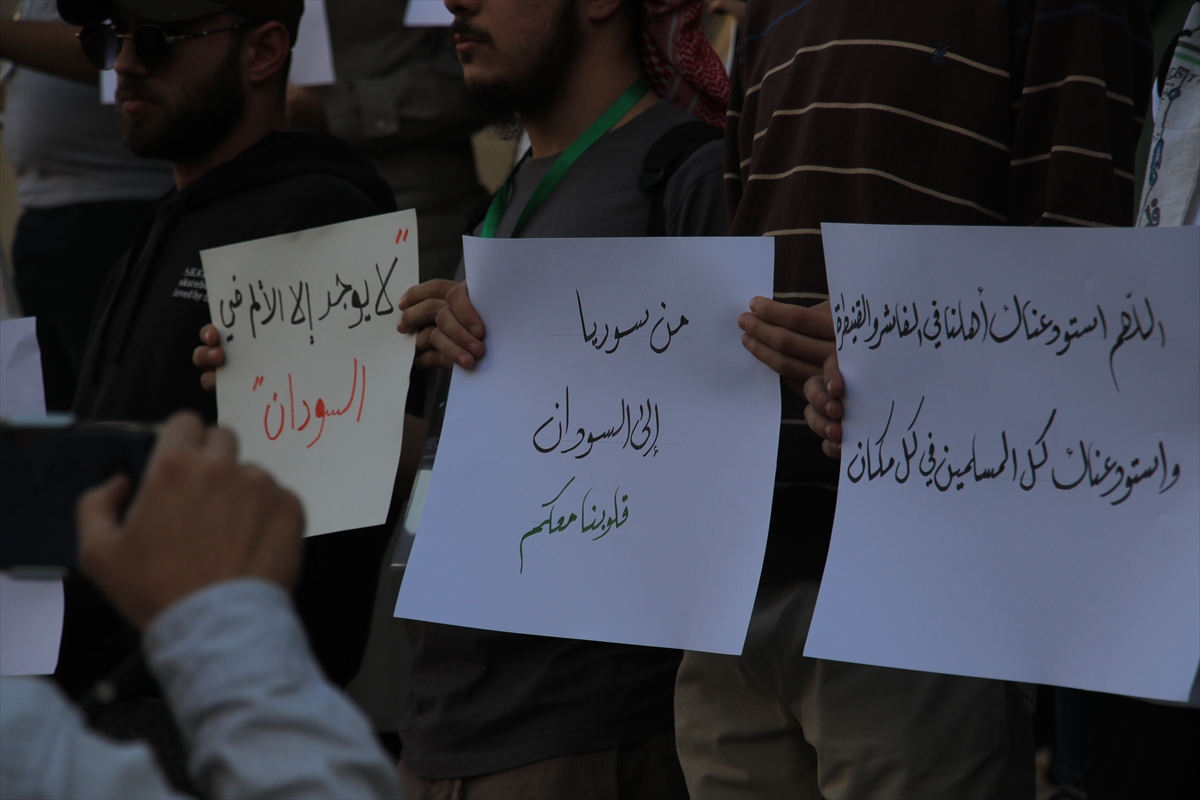 "لا يوجد إلا الألم في
السودان"
من سوريا
إلى السودان
قلوبنا معكم
اللهم استودعناك أهلنا في الفاشر والقنيطرة
واستودعناك كل المسلمين في كل مكان